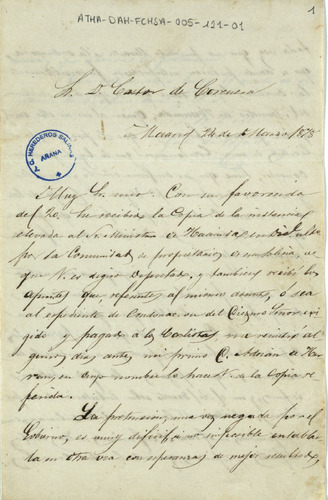 1
ATHA-DAH-FCHSA-005-121-01
S. D. Castor de
Madrid 24 de Marzo 1878
HEREDEROS
ARANA
Muy Sr. mio: Con su favorecida
del 20. he recibido la Copia de la instancia
elevada al Sr. Ministro de Hacienda en
por la Comunidad de propietarios
que V. es digno Diputado, y tambien recibi los
apuntes que referentes al mismo asunto, ó sea
al espediente de Condonacion del
gido y pagado á los Carlistas me remitió al
gunos dias antes mi primo D. Adrian de
en cuyo nombre lo hace V. de la Copia re
ferida.
La pretension, una vez negada por el
Gobierno, es muy dificil si no imposible entablar
la en otra via con esperanzas de mejor resultado,